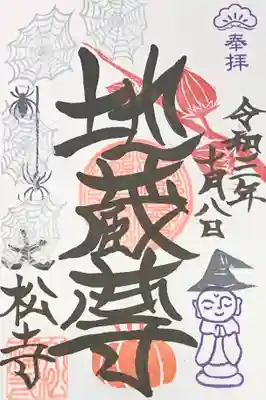 奉拝
令和二年
十月八日
地蔵尊
大松寺